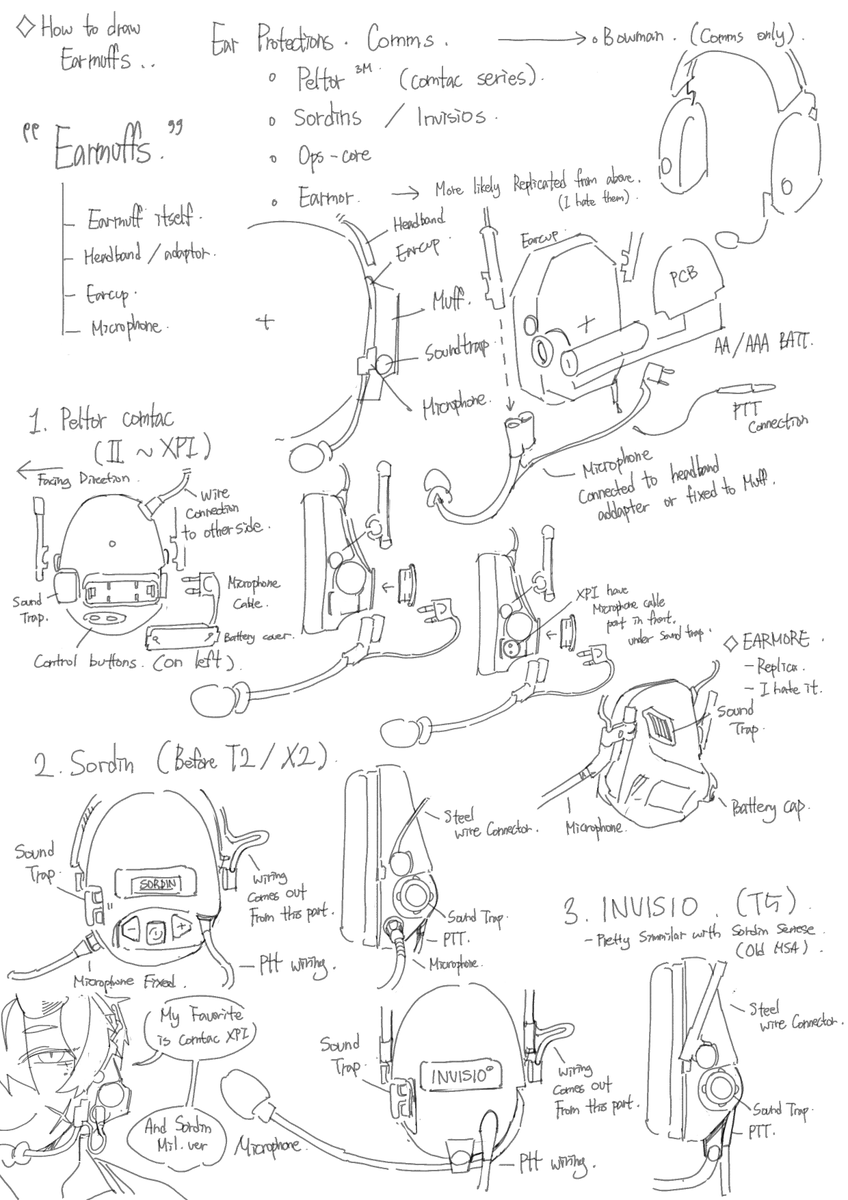 ◇ How to draw
Earmuffs..
Ear Protections. Comms.
→ • Bowman. (Comms only).
• Peltor 3M. (comtac series).
• Sordins / Invisios.
• Ops-core
• Earmor. → More likely Replicated from above.
(I hate them).
"Earmuffs."
- Earmuff itself.
- Headband / adaptor.
- Earcup.
- Microphone.
Headband
Earcup.
Muff.
Soundtrap.
Microphone.
Earcup
PCB
AA/AAA BATT.
PTT
Connection
Microphone
Connected to headband
addapter or fixed to Muff.
1. Peltor comtac
(II ~ XPI)
← Facing Direction.
Wire
Connection
to other side.
Sound
Trap.
Microphone
Cable.
Battery cover.
Control buttons. (on left).
XPI have
Microphone cable
port in front.
under sound trap.
◇ EARMORE.
- Replica.
- I hate it.
Sound
Trap.
Battery cap.
Microphone.
2. Sordin (Before T2 / X2).
Sound
Trap.
SORDIN
wiring
comes out
From this part.
Microphone Fixed.
Ptt wiring.
Steel
wire Connector.
Sound Trap.
PTT.
Microphone.
3. INVISIO. (T5).
- Pretty Simmilar with Sordin Seriese.
(Old MSA).
My Favorite
is Comtac XPI)
And Sordin
Mil. ver
Microphone.
Sound
Trap.
INVISIO
wiring
comes out
From this part.
Ptt wiring.
Steel
wire Connector.
Sound Trap.
PTT.